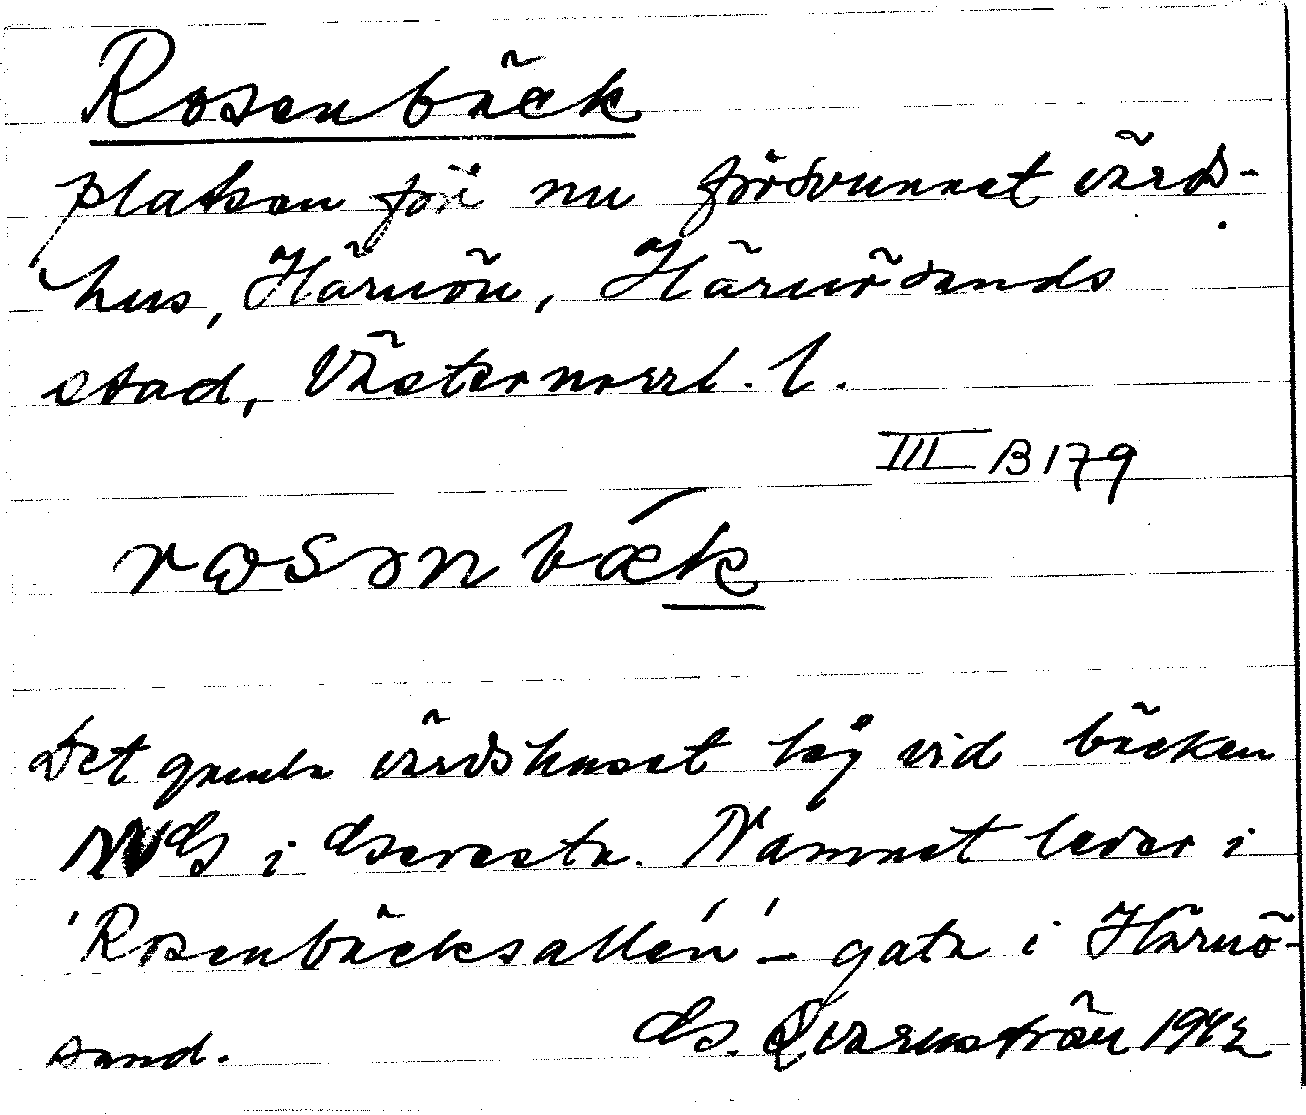 Rosenbäck
platsen för nu försvunnet värds-
hus, Härnön, Härnösands
stad, Västernorrl. l.
III B 179
rosənbæk
Det gamla värdshuset låg vid bäcken
i Namnet lever i
'Rosenbäcksallén' – gata i Härnö-
sand. Qvarnström 1942